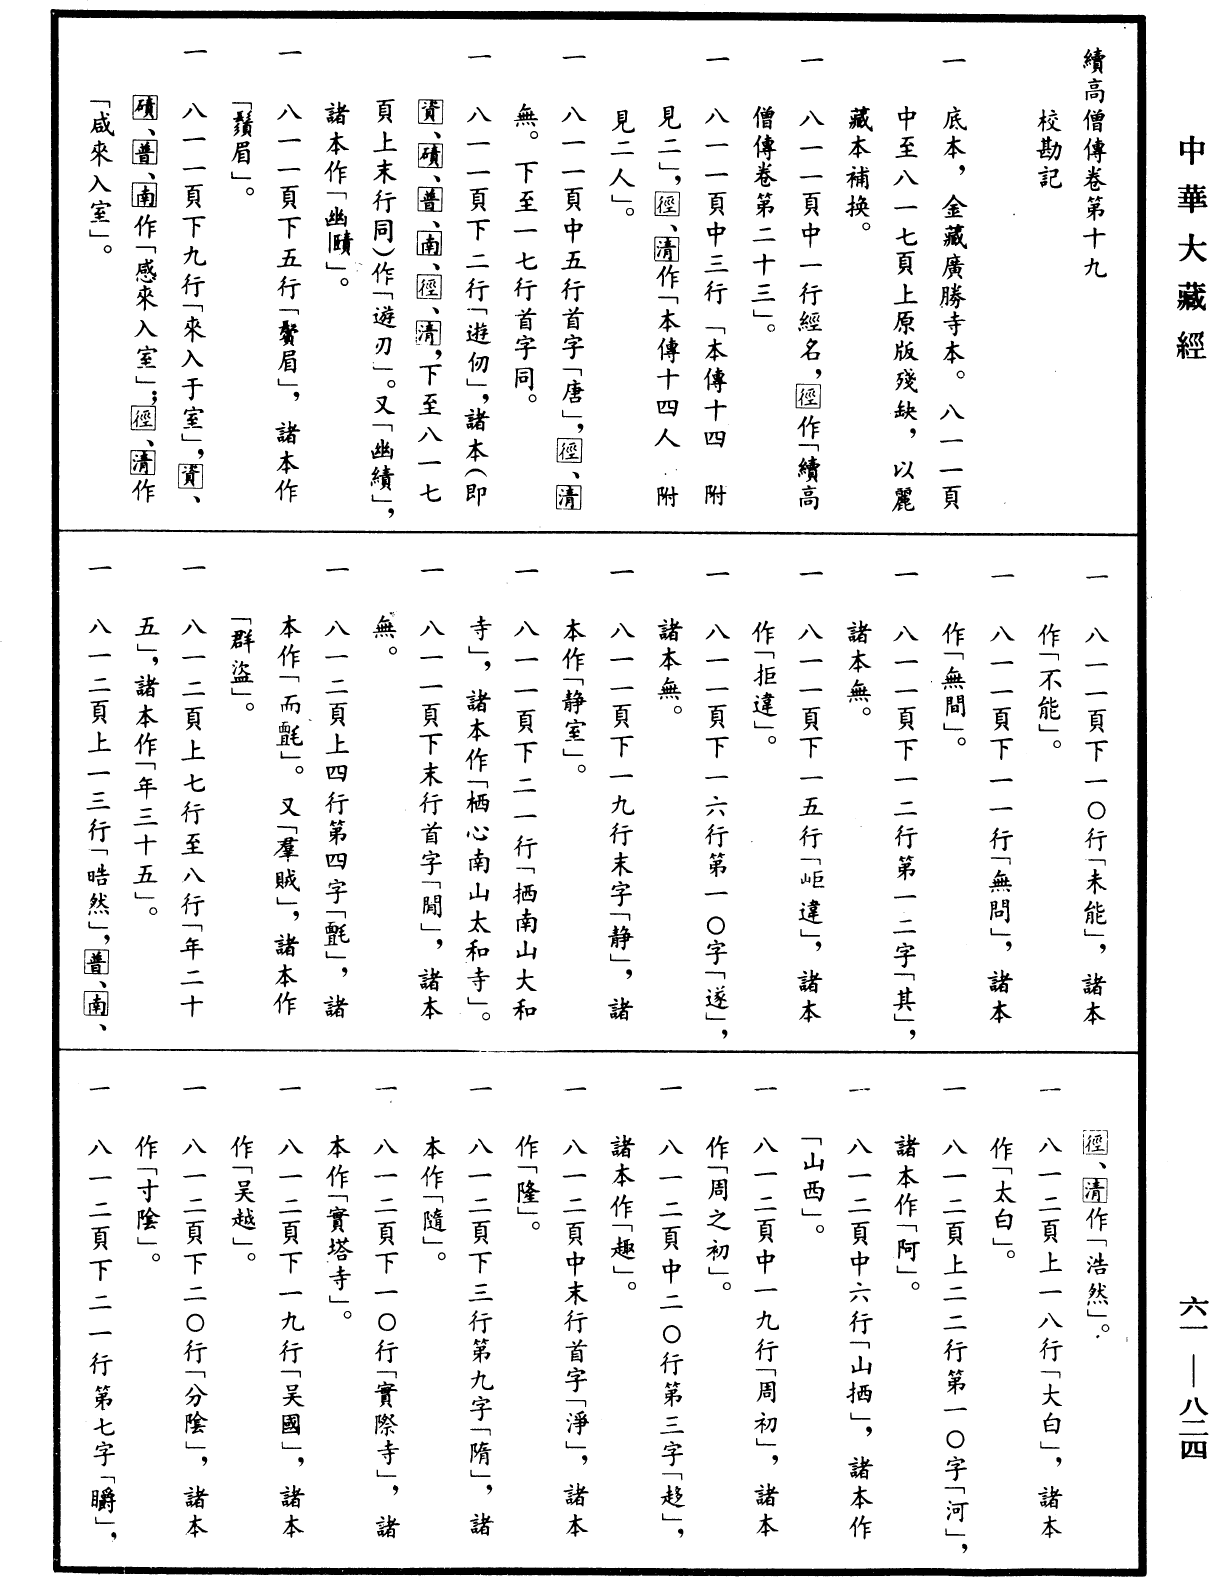 中華大藏經
續高僧傳卷第十九
校勘記
一　底本，金藏廣勝寺本。八一一頁
中至八一七頁上原版殘缺，以麗
藏本補換。
一　八一一頁中一行經名，徑作「續高
僧傳卷第二十三」。
一　八一一頁中三行「本傳十四　附
見二」，徑、清作「本傳十四人　附
見二人」。
一　八一一頁中五行首字「唐」，徑、清
無。下至一七行首字同。
一　八一一頁下二行「遊仞」，諸本（即
資、磧、普、南、徑、清，下至八一七
頁上末行同）作「遊刃」。又「幽績」，
諸本作「幽賾」。
一　八一一頁下五行「鬢眉」，諸本作
「鬚眉」。
一　八一一頁下九行「來入于室」，資、
磧、普、南作「感來入室」；徑、清作
「咸來入室」。
一　八一一頁下一〇行「未能」，諸本
作「不能」。
一　八一一頁下一一行「無問」，諸本
作「無間」。
一　八一一頁下一二行第一二字「其」，
諸本無。
一　八一一頁下一五行「岠違」，諸本
作「拒違」。
一　八一一頁下一六行第一〇字「遂」，
諸本無。
一　八一一頁下一九行末字「静」，諸
本作「静室」。
一　八一一頁下二一行「栖南山大和
寺」，諸本作「栖心南山太和寺」。
一　八一一頁下末行首字「聞」，諸本
無。
一　八一二頁上四行第四字「氈」，諸
本作「而氈」。又「羣賊」，諸本作
「群盜」。
一　八一二頁上七行至八行「年二十
五」，諸本作「年三十五」。
一　八一二頁上一三行「晧然」，普、南、
徑、清作「浩然」。
一　八一二頁上一八行「大白」，諸本
作「太白」。
一　八一二頁上二二行第一〇字「河」，
諸本作「阿」。
一　八一二頁中六行「山栖」，諸本作
「山西」。
一　八一二頁中一九行「周初」，諸本
作「周之初」。
一　八一二頁中二〇行第三字「趍」，
諸本作「趣」。
一　八一二頁中末行首字「淨」，諸本
作「隆」。
一　八一二頁下三行第九字「隋」，諸
本作「隨」。
一　八一二頁下一〇行「實際寺」，諸
本作「實塔寺」。
一　八一二頁下一九行「吴國」，諸本
作「吴越」。
一　八一二頁下二〇行「分陰」，諸本
作「寸陰」。
一　八一二頁下二一行第七字「矙」，
六一—八二四